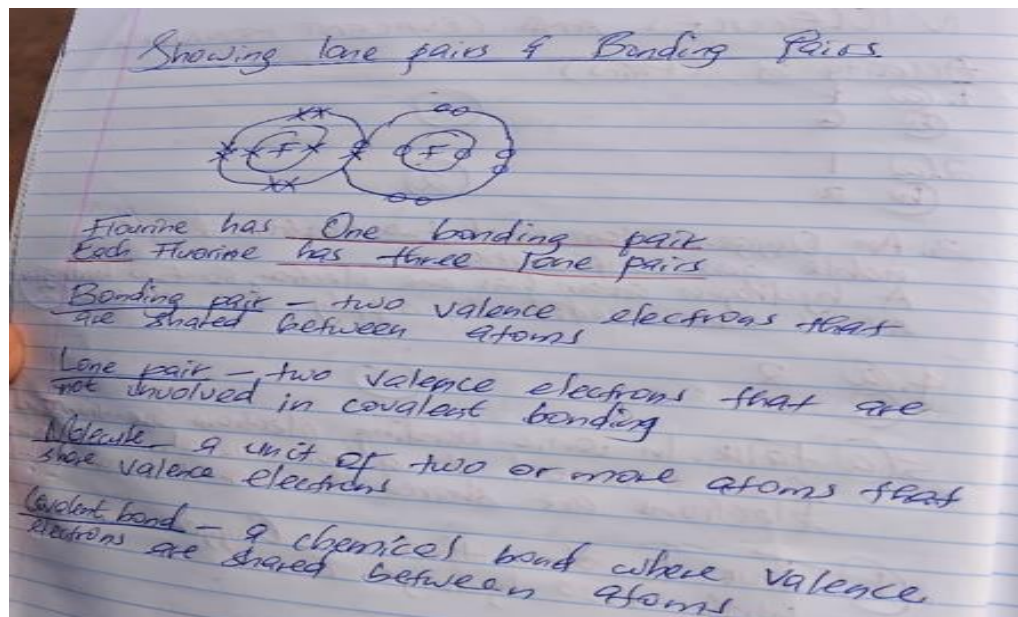 Showing lone pairs & Bonding Pairs
xx oo
F F
xx oo
Flourine has One bonding pair
Each Fluorine has three lone pairs
Bonding pair - two valence electrons that
are shared between atoms
Lone pair - two valence electrons that are
not involved in covalent bonding
Molecule - a unit of two or more atoms that
share valence electrons
Covalent bond - a chemical bond where valence
electrons are shared between atoms